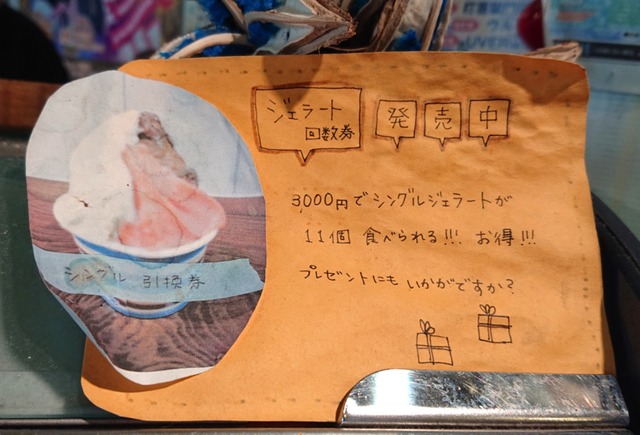 ジェラート
回数券
発売中
3000円でシングルジェラートが
11個 食べられる!!! お得!!!
プレゼントにもいかがですか?
シングル 引換券